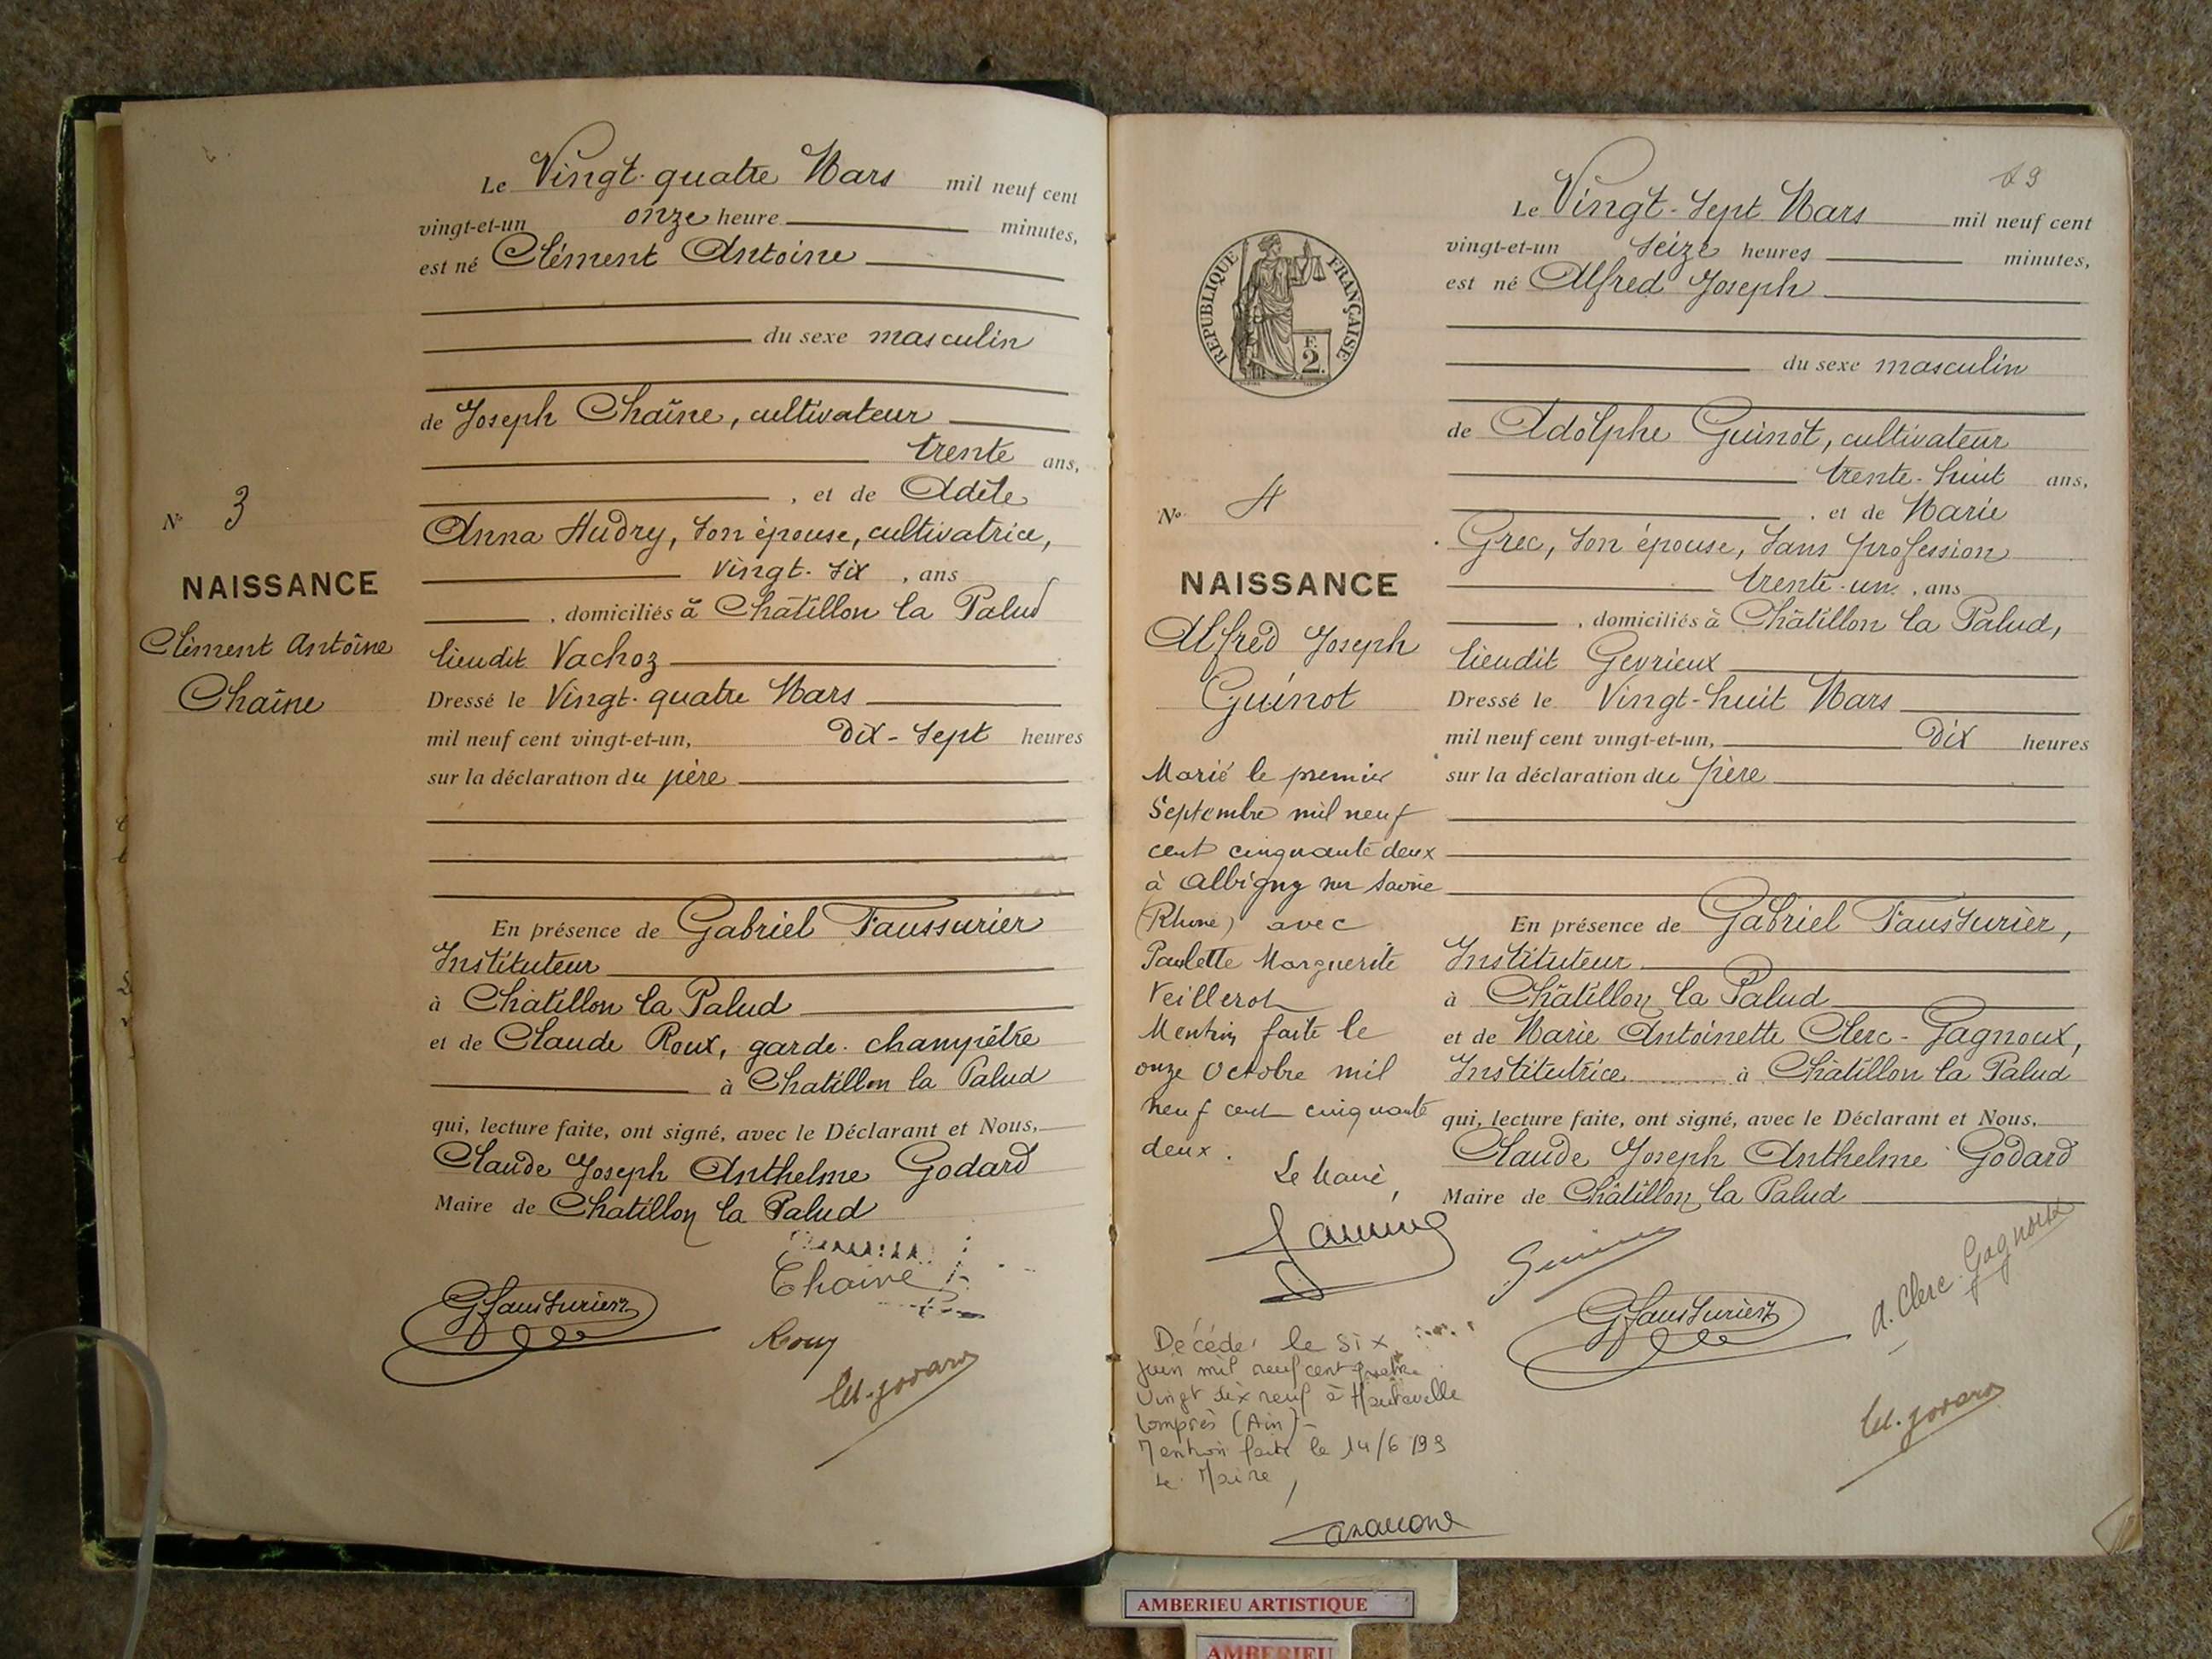 Le Vingt-quatre Mars mil neuf cent
vingt-et-un onze heure minutes,
est né Clément Antoine
du sexe masculin
de Joseph Chaîne, cultivateur
trente ans,
, et de Adèle
Anna Audry, son épouse, cultivatrice,
vingt-six , ans
, domiciliés à Châtillon la Palud
lieudit Vachoz
Dressé le Vingt-quatre Mars
mil neuf cent vingt-et-un, dix-sept heures
sur la déclaration du père
En présence de Gabriel Faussurier
Instituteur
à Châtillon la Palud
et de Claude Roux, garde-champêtre
à Chatillon la Palud
qui, lecture faite, ont signé, avec le Déclarant et Nous,
Claude Joseph Anthelme Godard
Maire de Chatillon la Palud
Chaine
GFaussurier
Roux
N° 3
NAISSANCE
Clément Antoine
Chaîne
Le Vingt-sept Mars mil neuf cent
vingt-et-un seize heures minutes,
est né Alfred Joseph
du sexe masculin
de Adolphe Guinot, cultivateur
trente-huit ans,
, et de Marie
Grec, son épouse, sans profession
trente-un , ans
, domiciliés à Châtillon la Palud,
lieudit Gevrieux
Dressé le Vingt-huit Mars
mil neuf cent vingt-et-un, dix heures
sur la déclaration du père
En présence de Gabriel Faussurier,
Instituteur
à Châtillon la Palud
et de Marie Antoinette Clerc-Gagnoux,
Institutrice à Châtillon la Palud
qui, lecture faite, ont signé, avec le Déclarant et Nous,
Claude Joseph Anthelme Godard
Maire de Châtillon la Palud
GFaussurier
A. Clerc-Gagnoux
REPUBLIQUE FRANÇAISE
F.
2.
N° 4
NAISSANCE
Alfred Joseph
Guinot
Marié le premier
Septembre mil neuf
cent cinquante deux
à Albigny sur Saône
(Rhône) avec
Paulette Marguerite
Veillerot
Mention faite le
onze Octobre mil
neuf cent cinquante
deux.
Le Maire,
Décédé le six
juin mil neuf cent quatre
vingt dix neuf à Hauteville
Lompnès (Ain)-
Mention faite le 14/6/99
Le Maire,
AMBERIEU ARTISTIQUE
AMBERIEU